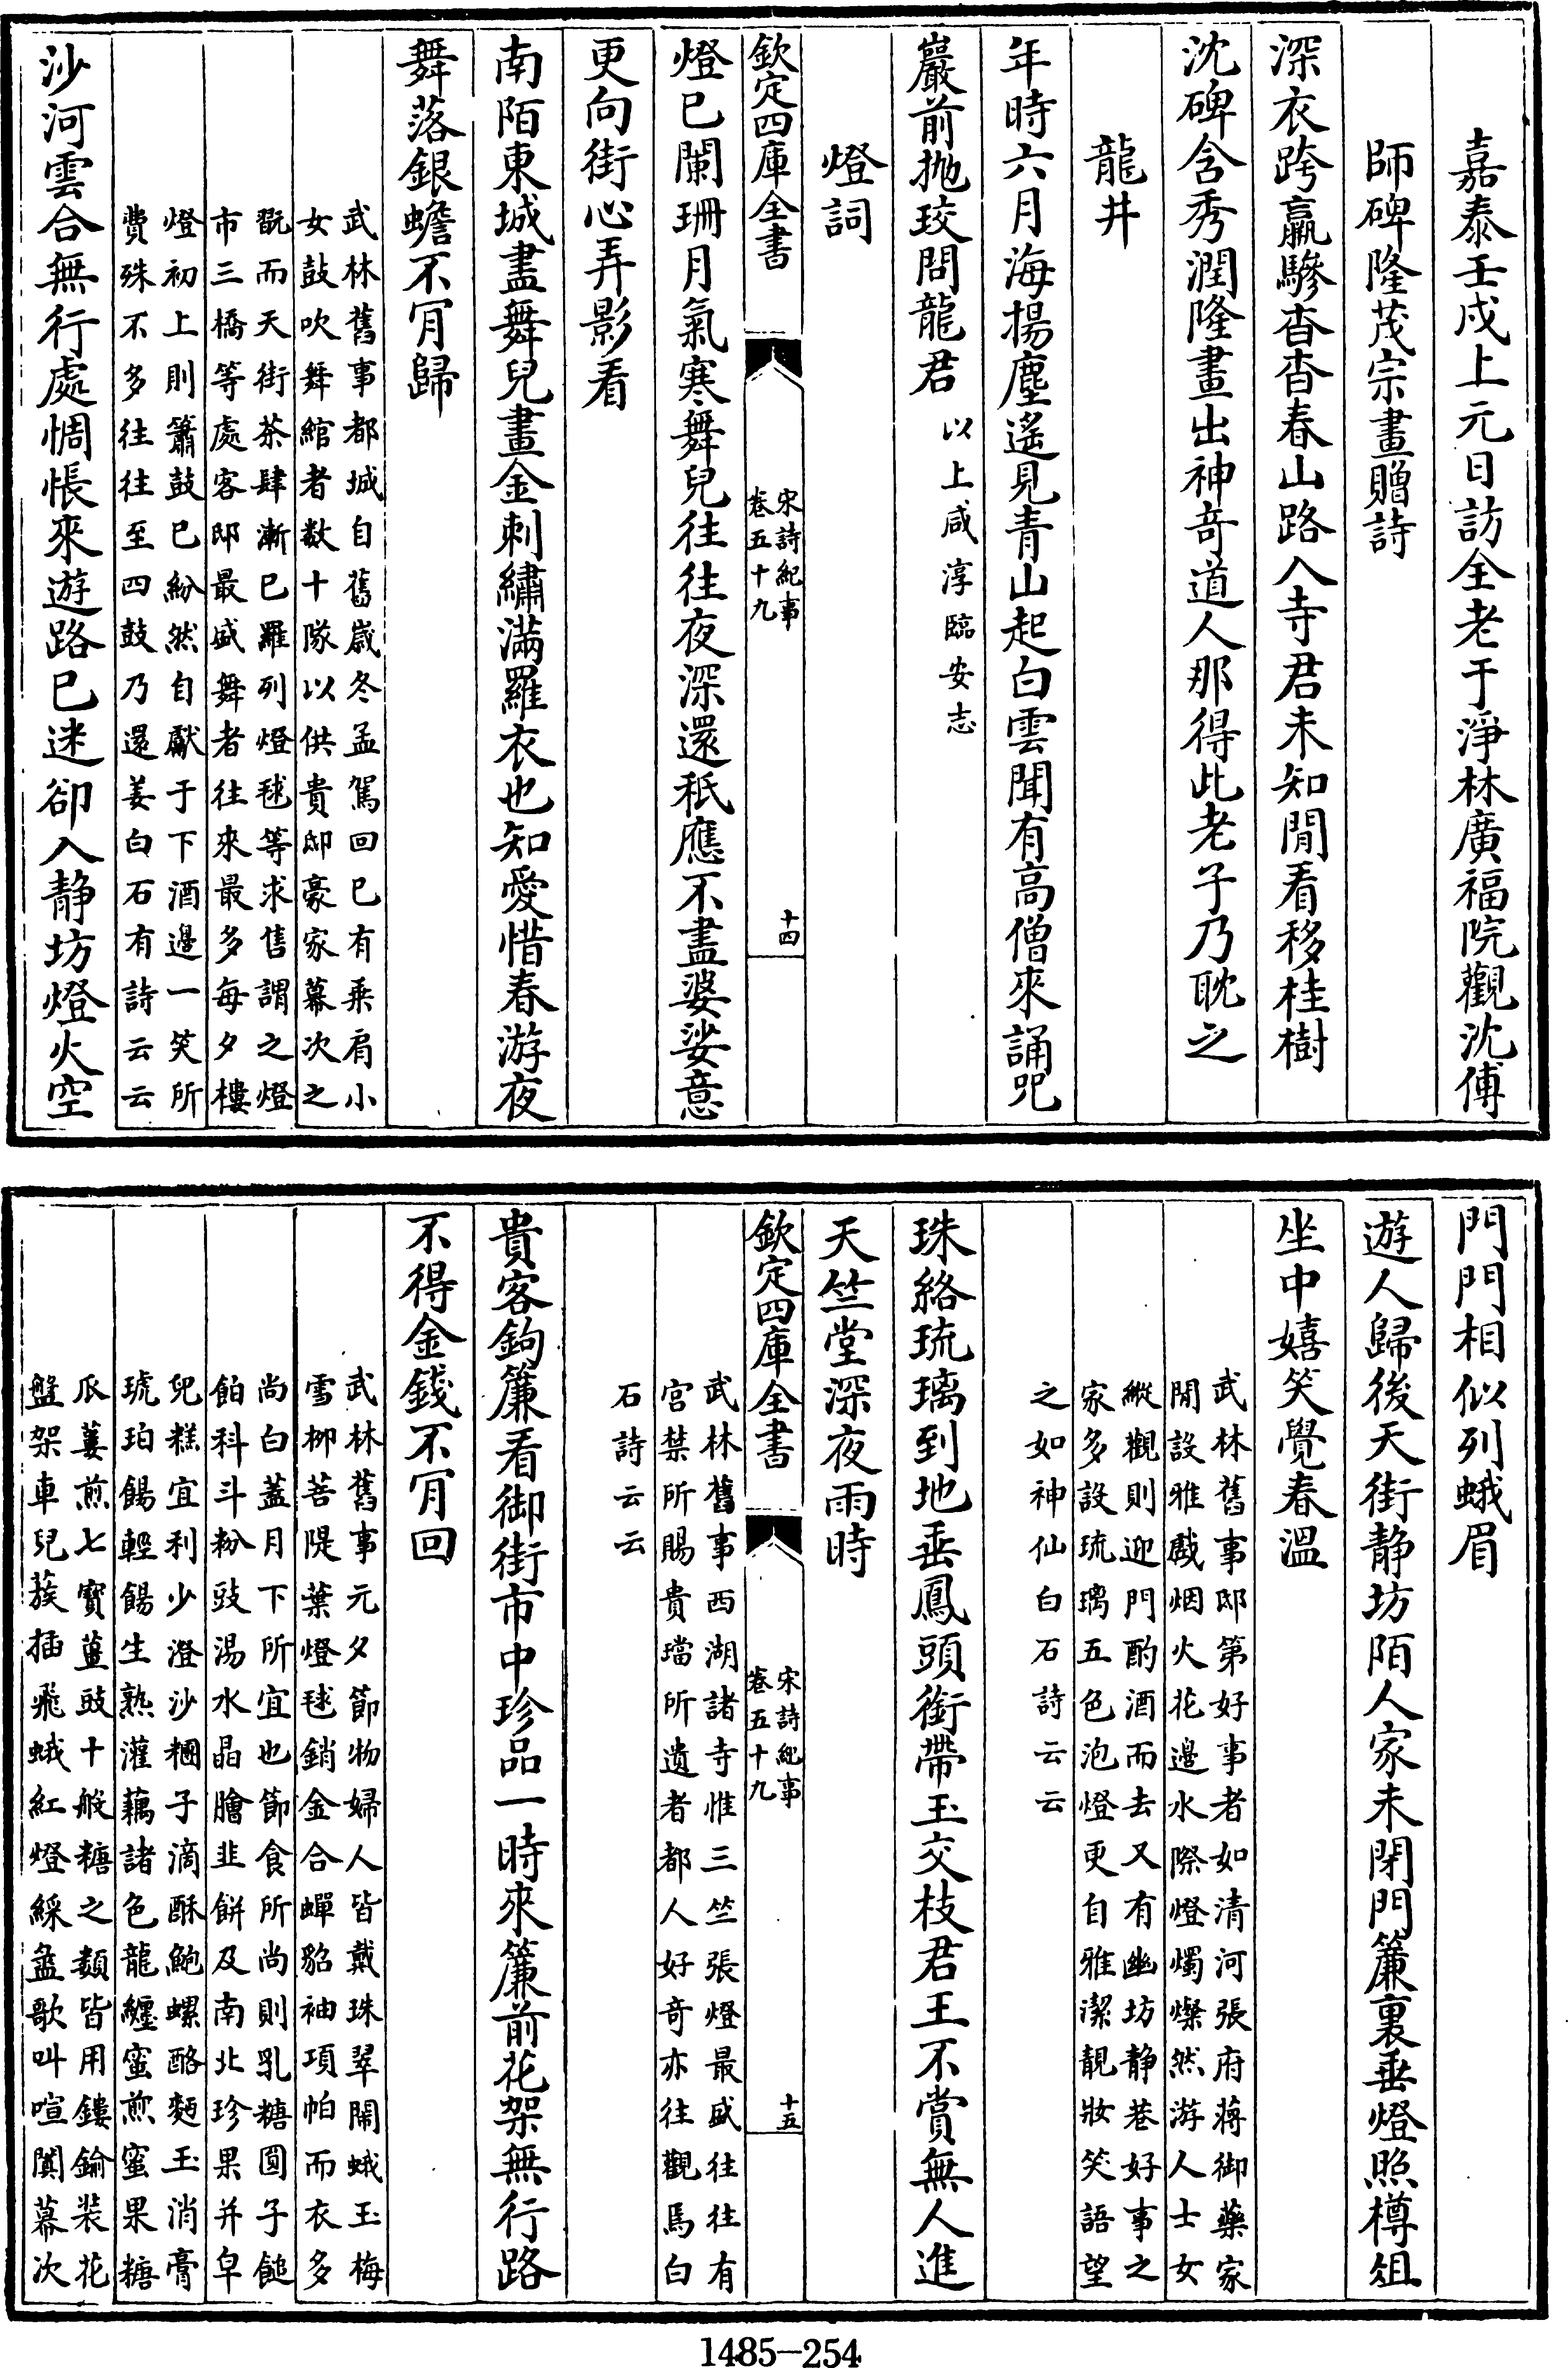 嘉泰壬戌上元日訪全老于淨林廣福院觀沈傅
師碑隆茂宗畫贈詩
深衣跨羸驂杳杳春山路入寺君未知閒看移桂樹
沈碑含秀潤隆畫出神奇道人那得此老子乃耽之
龍井
年時六月海揚塵遙見青山起白雲聞有高僧來誦咒
巖前拋珓問龍君
以上咸淳臨安志
燈詞
欽定四庫全書
宋詩紀事
卷五十九
十四
燈已闌珊月氣寒舞兒往往夜深還秪應不盡婆娑意
更向街心弄影看
南陌東城盡舞兒畫金刺繡滿羅衣也知愛惜春游夜
舞落銀蟾不冐歸
武林舊事都城自舊歲冬孟駕回已有乘肩小
女鼓吹舞綰者數十隊以供貴邸豪家幕次之
翫而天街茶肆漸已羅列燈毬等求售謂之燈
市三橋等處客邸最盛舞者往來最多每夕樓
燈初上則簫鼓已紛然自獻于下酒邊一笑所
費殊不多往往至四鼓乃還姜白石有詩云云
沙河雲合無行處惆悵來遊路已迷卻入靜坊燈火空
門門相似列蛾眉
遊人歸後天街静坊陌人家未閉門簾裏垂燈照樽俎
坐中嬉笑覺春溫
武林舊事邸第好事者如清河張府蔣御藥家
閒設雅戲烟火花邊水際燈燭燦然游人士女
縱觀則迎門酌酒而去又有幽坊静巷好事之
家多設琉璃五色泡燈更自雅潔靚妝笑語望
之如神仙白石詩云云
珠絡琉璃到地垂鳳頭銜帶玉交枝君王不賞無人進
天竺堂深夜雨時
欽定四庫全書
宋詩紀事
卷五十九
十五
武林舊事西湖諸寺惟三竺張燈最盛往往有
宫禁所賜貴璫所遺者都人好奇亦往觀焉白
石詩云云
貴客鉤簾看御街市中珍品一時來簾前花架無行路
不得金錢不冐回
武林舊事元夕節物婦人皆戴珠翠鬧蛾玉梅
雪柳菩隄葉燈毬銷金合蟬貂袖項帕而衣多
尚白蓋月下所宜也節食所尚則乳糖圓子䭔
飿科斗粉豉湯水晶膾韭餅及南北珍果并皁
兒糕宜利少澄沙糰子滴酥鮑螺酪麪玉消膏
琥珀餳輕餳生熟灌藕諸色龍纏蜜煎蜜果糖
瓜蔞煎七寶薑豉十般糖之類皆用鏤鍮装花
盤架車兒簇插飛蛾紅燈綵盝歌叫喧闐幕次
1485—254